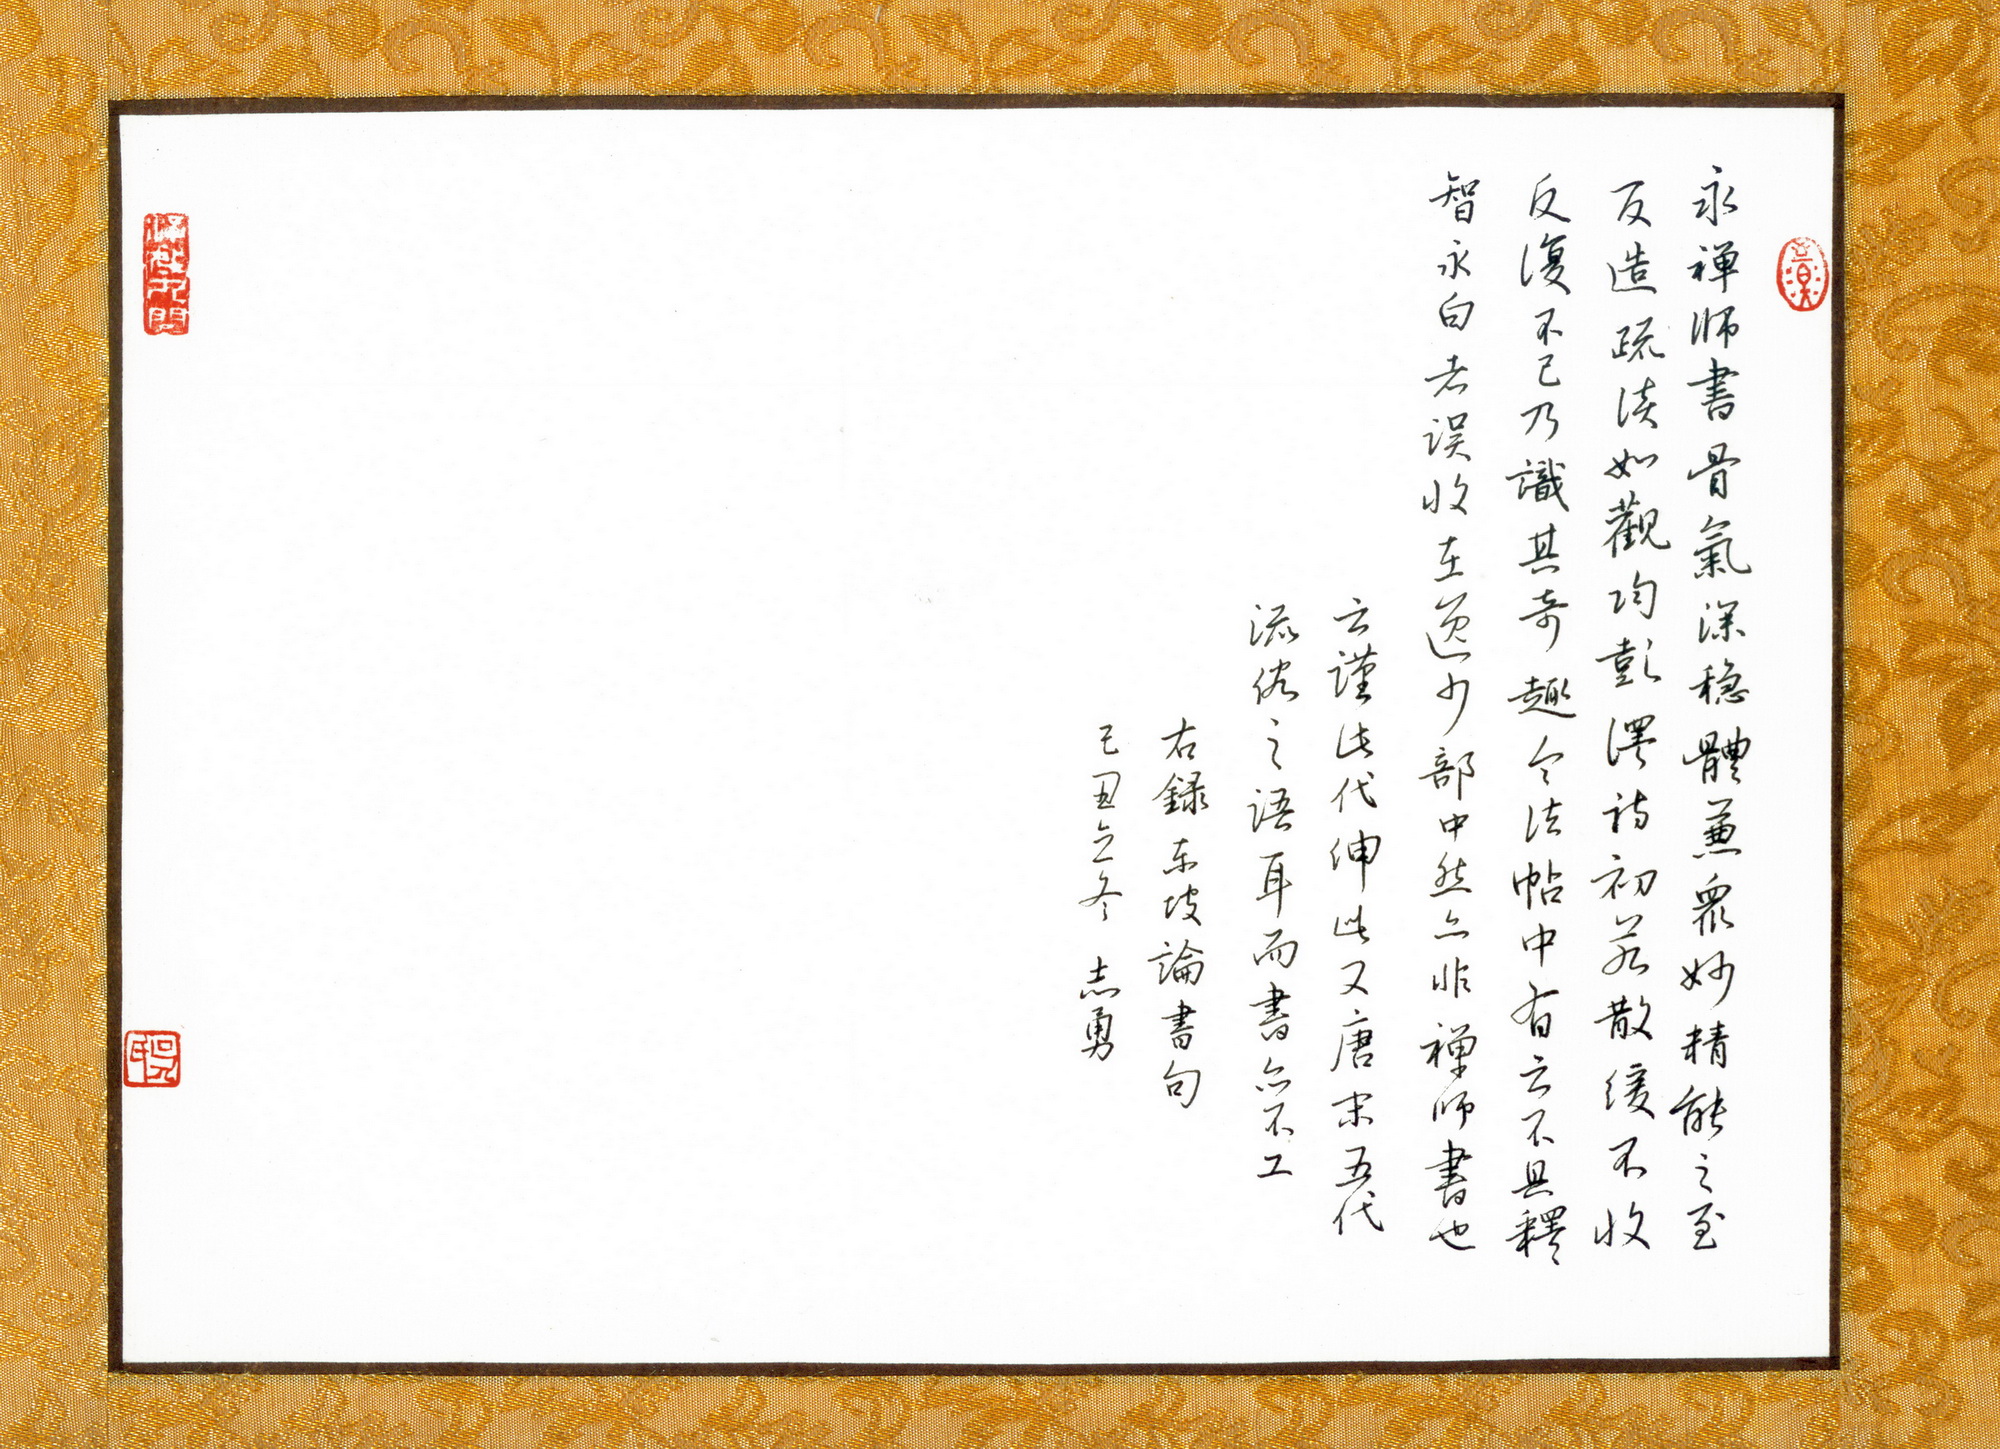 永禪师書骨氣深稳體蒹眾妙精能之至
反造疏淡如觀陶彭澤诗初若散缓不收
反復不已乃識其奇趣今法帖中有云不具釋
智永白者误收在逸少部中然亦非禪师書也
云謹此代伸此又唐末五代
流俗之语耳而書亦不工
右録东坡論書句
己丑立冬 志勇